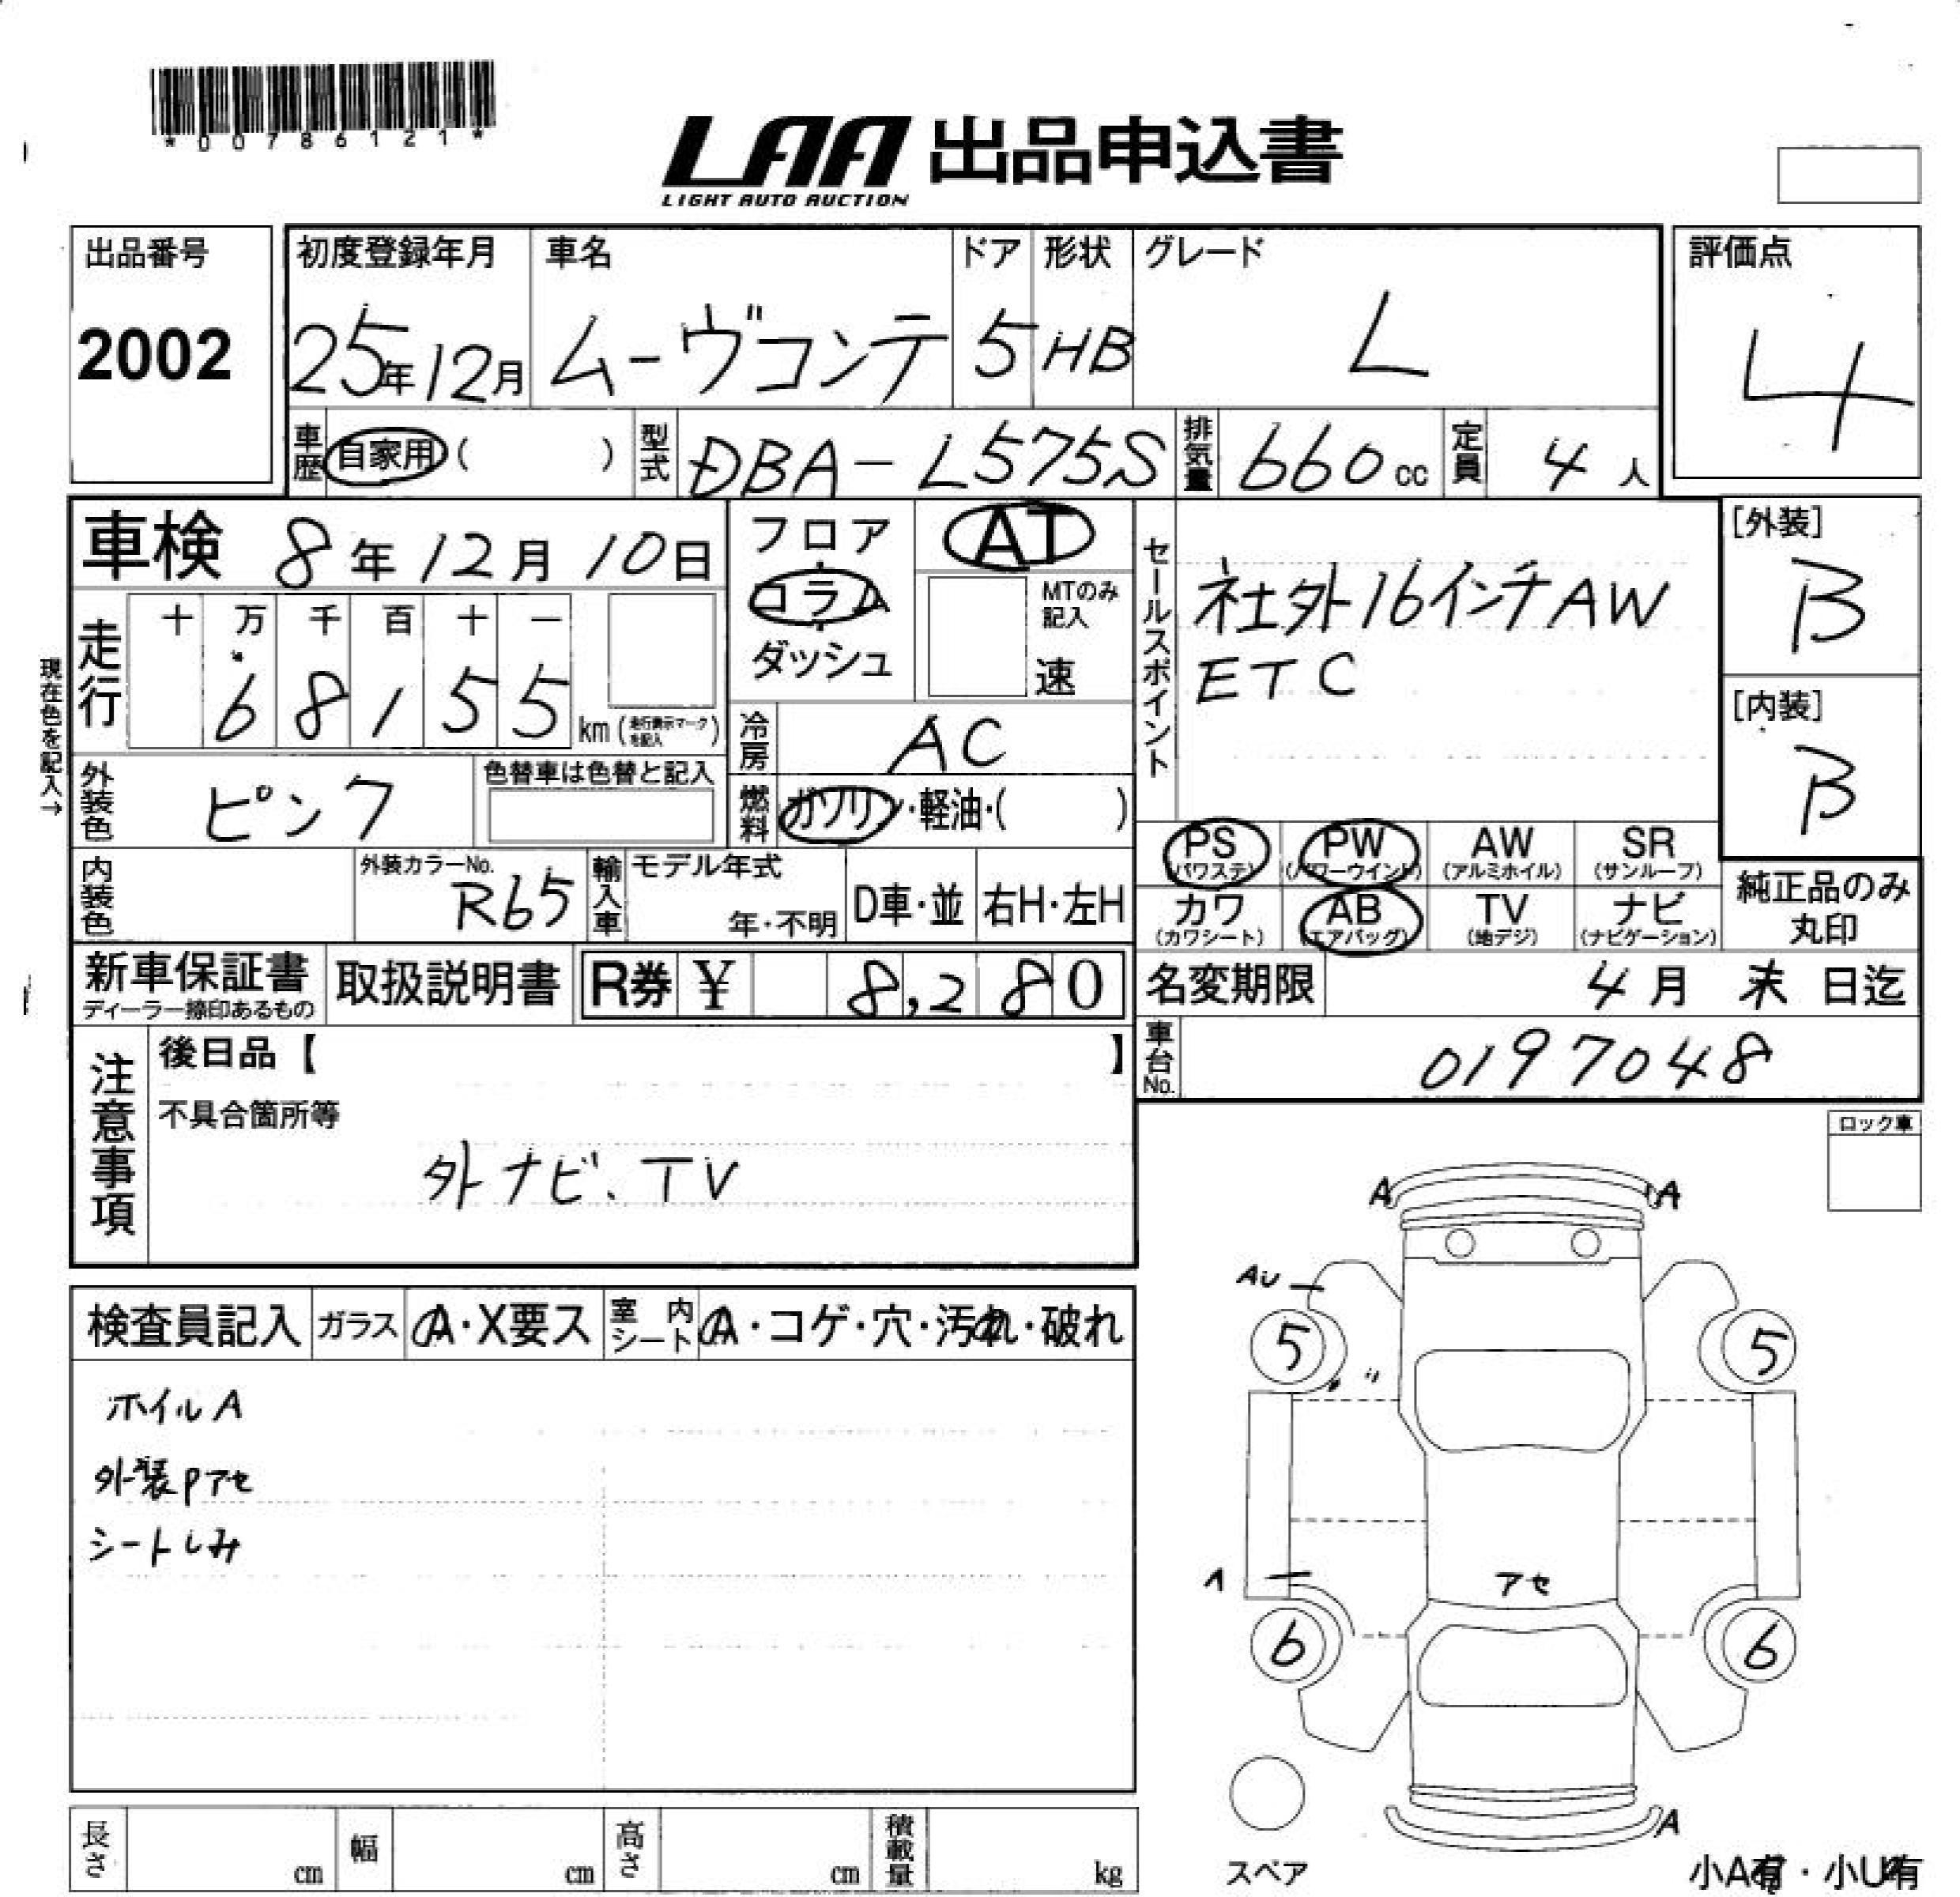 *00786121*
LAA 出品申込書
LIGHT AUTO AUCTION
出品番号 2002
初度登録年月 25年12月
車名 ムーヴコンテ
ドア 5
形状 HB
グレード L
評価点 4
車歴 自家用 ( )
型式 DBA-L575S
排気量 660 cc
定員 4 人
車検 8年12月10日
フロア・コラム・ダッシュ
AT
MTのみ記入
速
セールスポイント
社外16インチAW
ETC
[外装] B
[内装] B
現在色を記入→
走行 十 万 千 百 十 一
68155 km (走行表示マークを記入)
冷房 AC
外装色 ピンク
色替車は色替と記入
燃料 ガソリン・軽油・( )
PS (パワステ)
PW (パワーウインド)
AW (アルミホイル)
SR (サンルーフ)
カワ (カワシート)
AB (エアバッグ)
TV (地デジ)
ナビ (ナビゲーション)
純正品のみ丸印
内装色
外装カラーNo. R65
輸入車
モデル年式 年・不明
D車・並
右H・左H
新車保証書
ディーラー捺印あるもの
取扱説明書
R券 ¥ 8,280
名変期限 4月 末 日迄
車台No. 0197048
注意事項
後日品【 】
不具合箇所等
外ナビ、TV
ロック車
検査員記入
ガラス A・X要ス
室内シート A・コゲ・穴・汚れ・破れ
ホイルA
外装Pアセ
シートしみ
A A
AU
5 5
A
アセ
6 6
A
スペア
小A有・小U有
長さ cm
幅 cm
高さ cm
積載量 kg